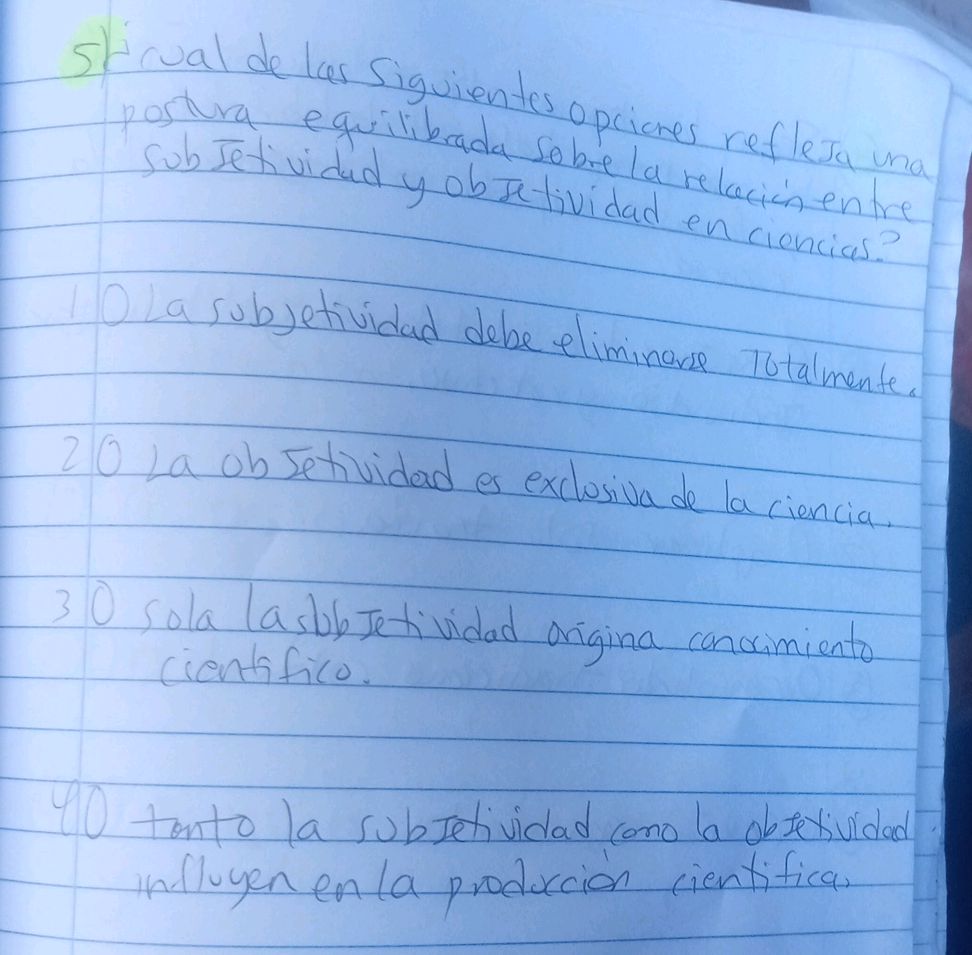 5) cual de las siguientes opciones refleja una
postura equilibrada sobre la relación entre
subjetividad y objetividad en ciencias?
1 O La subjetividad debe eliminarse Totalmente.
2 O La objetividad es exclosiva de la ciencia.
3 O sola la subjetividad origina conocimiento
cientifico.
4 O tanto la subjetividad como la objetividad
influyen en la producción cientifica.